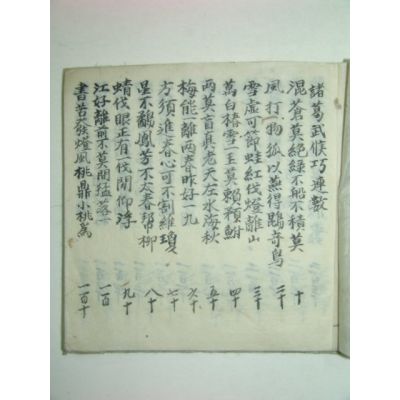 諸葛武候巧連數
混蒼莫絕綠不船不積莫 十
風打物狐以燕得鷗奇鳥 二十
雪虛可節蛙紅伐燈離山 三十
萬白椿雪一王莫賴積鮒 四十
兩莫盲真老天左水海秋 五十
梅能離兩春昨好一九 六十
方須進春心可不割維瓊 七十
是不觀鳳芳不太春帮柳 八十
蜻伐眼正有一伐閒仰浮 九十
江好離前不莫閒猛落一 一百
書苦發燈風桃鼎小桃萬 一百十